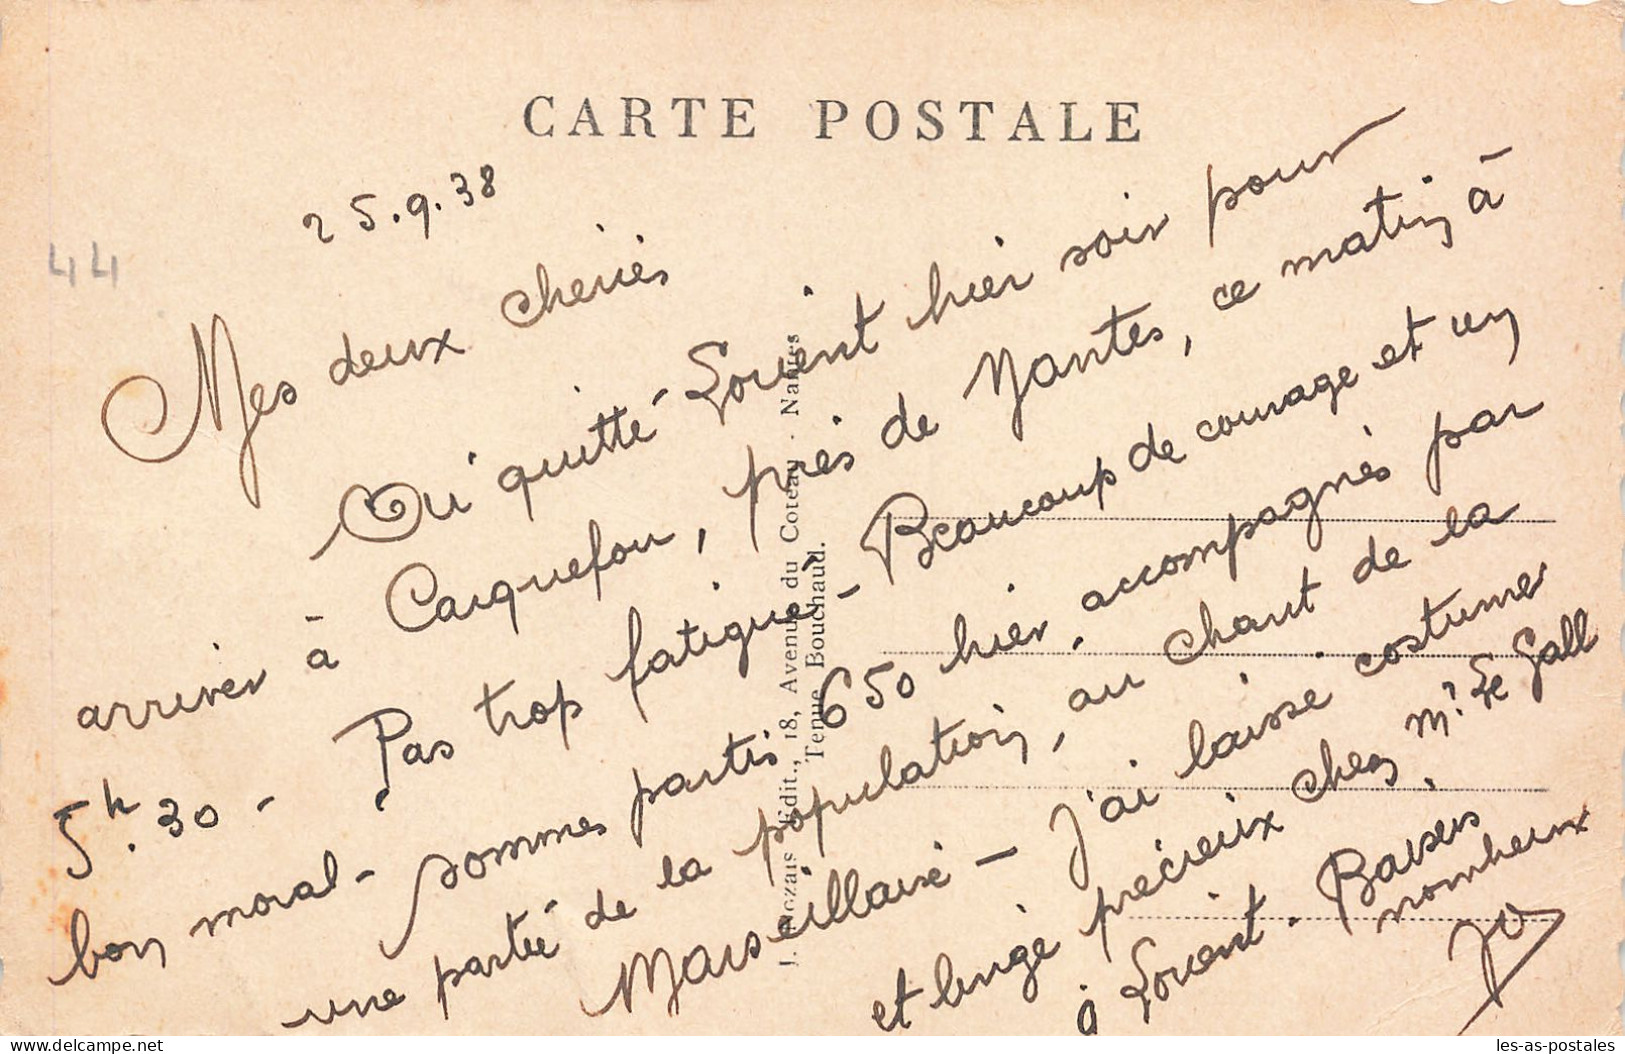 CARTE POSTALE
25.9.38
44
Mes deux cheries
Ai quitté Lorient hier soir pour
arriver à Carquefou, près de Nantes, ce matin à
5h.30 - Pas trop fatigué - Beaucoup de courage et un
bon moral - sommes partis 650 hier, accompagnés par
une partie de la population, au chant de la
Marseillaise - J'ai laissé costume
et linge précieux chez Mr Le Gall
à Lorient. Baisers
nombreux
Jo
J. Nozais Edit., 18, Avenue du Coteau - Nantes
Tenue Bouchaud.
les-as-postales
delcampe.net